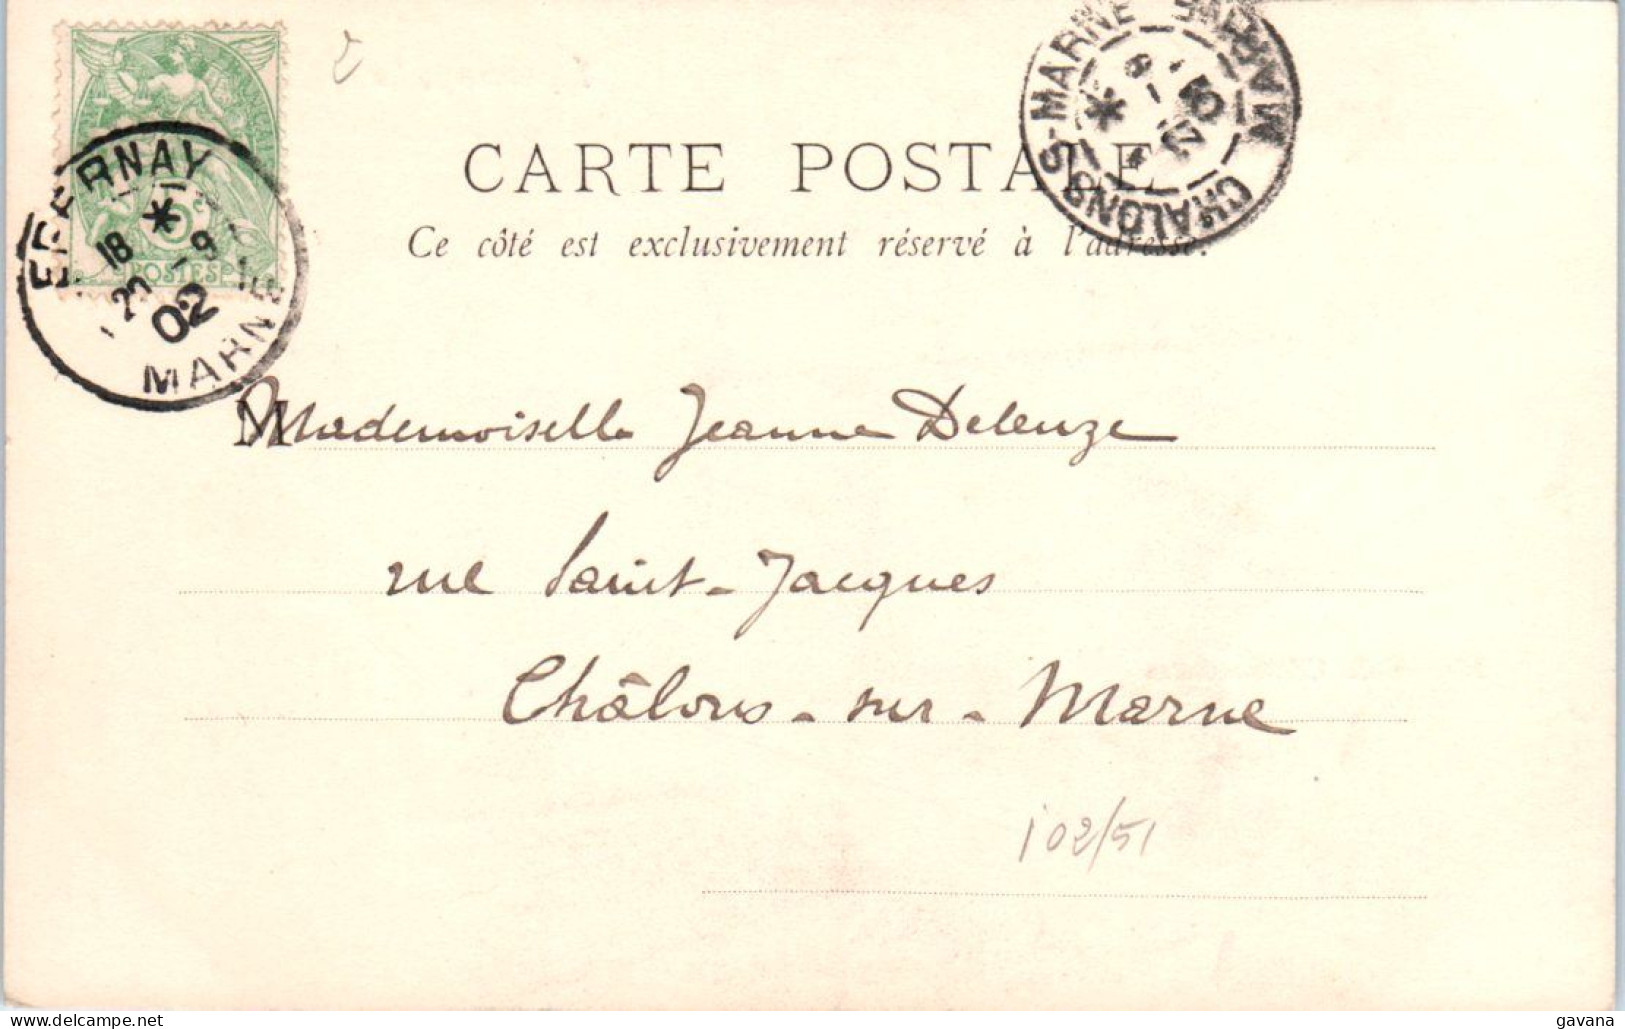 POSTES
5c
EPERNAY
18 * 9
20 - 02
MARNE
CHALONS-S-MARNE MARNE
CARTE POSTALE
Ce côté est exclusivement réservé à l'adresse.
M
Mademoiselle Jeanne Deleuze
rue Saint-Jacques
Châlons-sur-Marne
102/51
gavana